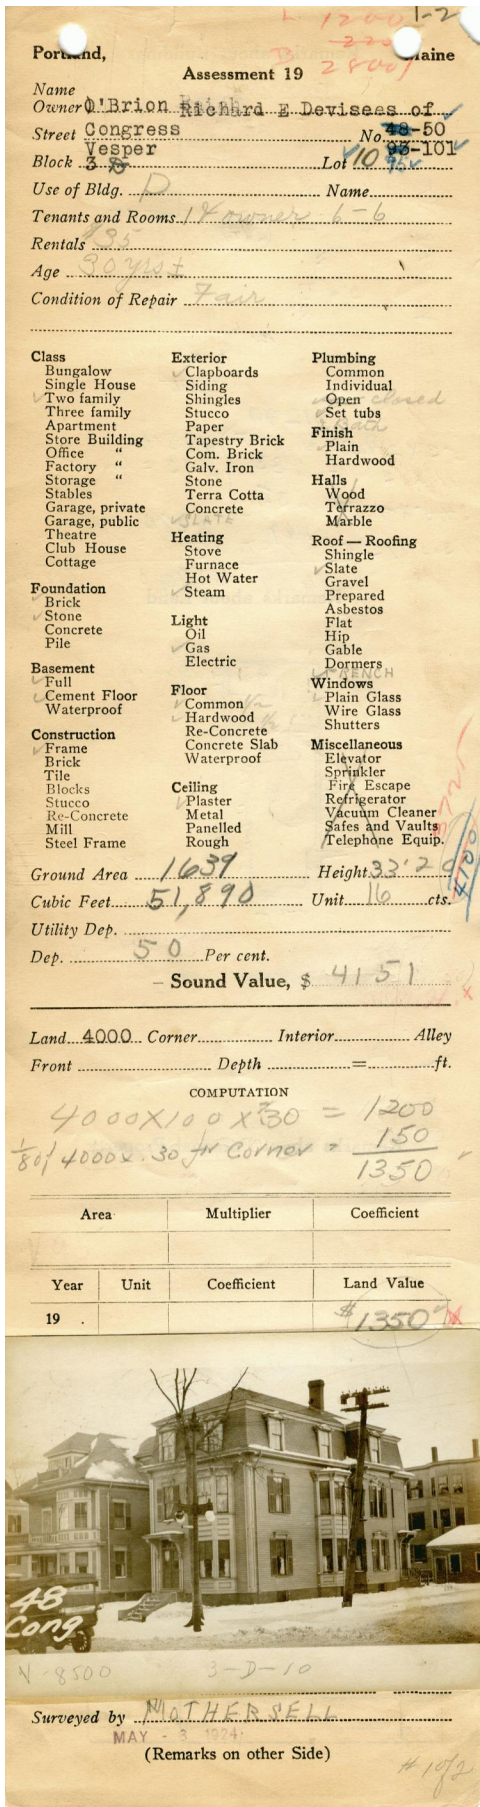 L 1200 1-2
220
B 2800
Portland, Maine
Assessment 19
Name
Owner O'Brion Richard E Devisees of
Street Congress No. 48-50
Vesper 93-101
Block 3 D Lot 10 95
Use of Bldg. D Name
Tenants and Rooms 1 & owner 6-6
Rentals $35
Age 30 yrs ±
Condition of Repair Fair
Class
Bungalow
Single House
✓ Two family
Three family
Apartment
Store Building
Office "
Factory "
Storage "
Stables
Garage, private
Garage, public
Theatre
Club House
Cottage
Foundation
Brick
✓ Stone
Concrete
Pile
Basement
✓ Full
✓ Cement Floor
Waterproof
Construction
✓ Frame
Brick
Tile
Blocks
Stucco
Re-Concrete
Mill
Steel Frame
Exterior
✓ Clapboards
Siding
Shingles
Stucco
Paper
Tapestry Brick
Com. Brick
Galv. Iron
Stone
Terra Cotta
Concrete
✓ SLATE
Heating
Stove
Furnace
Hot Water
✓ Steam
Light
Oil
✓ Gas
Electric
Floor
✓ Common 1/2
✓ Hardwood 1/2
Re-Concrete
Concrete Slab
Waterproof
Ceiling
✓ Plaster
Metal
Panelled
Rough
Plumbing
Common
Individual
Open closed
✓ Set tubs
Bath
Finish
✓ Plain
Hardwood
Halls
Wood
Terrazzo
Marble
Roof — Roofing
Shingle
✓ Slate
Gravel
Prepared
Asbestos
Flat
Hip
Gable
Dormers
✓ FRENCH
Windows
✓ Plain Glass
Wire Glass
Shutters
Miscellaneous
Elevator
Sprinkler
Fire Escape
Refrigerator
Vacuum Cleaner
Safes and Vaults
Telephone Equip.
3725
4100
Ground Area 1639 Height 33'20
Cubic Feet 51,890 Unit 16 cts.
Utility Dep.
Dep. 50 Per cent.
– Sound Value, $ 4151
Land 4000 Corner Interior Alley
Front Depth = ft.
COMPUTATION
4000 X 100 X .30 = 1200
1/8 of 4000 x .30 for Corner = 150
1350
Area Multiplier Coefficient
Year Unit Coefficient Land Value
19 . $1350
48
Cong
V-8500 3-D-10
Surveyed by MOTHERSELL
MAY - 3 1924
(Remarks on other Side)
# 1 of 2